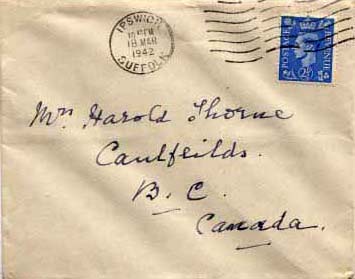 IPSWICH
18 MAR
1942
SUFFOLK
POSTAGE REVENUE
2½D
Mrs Harold Thorne
Caulfeilds.
B. C.
Canada.